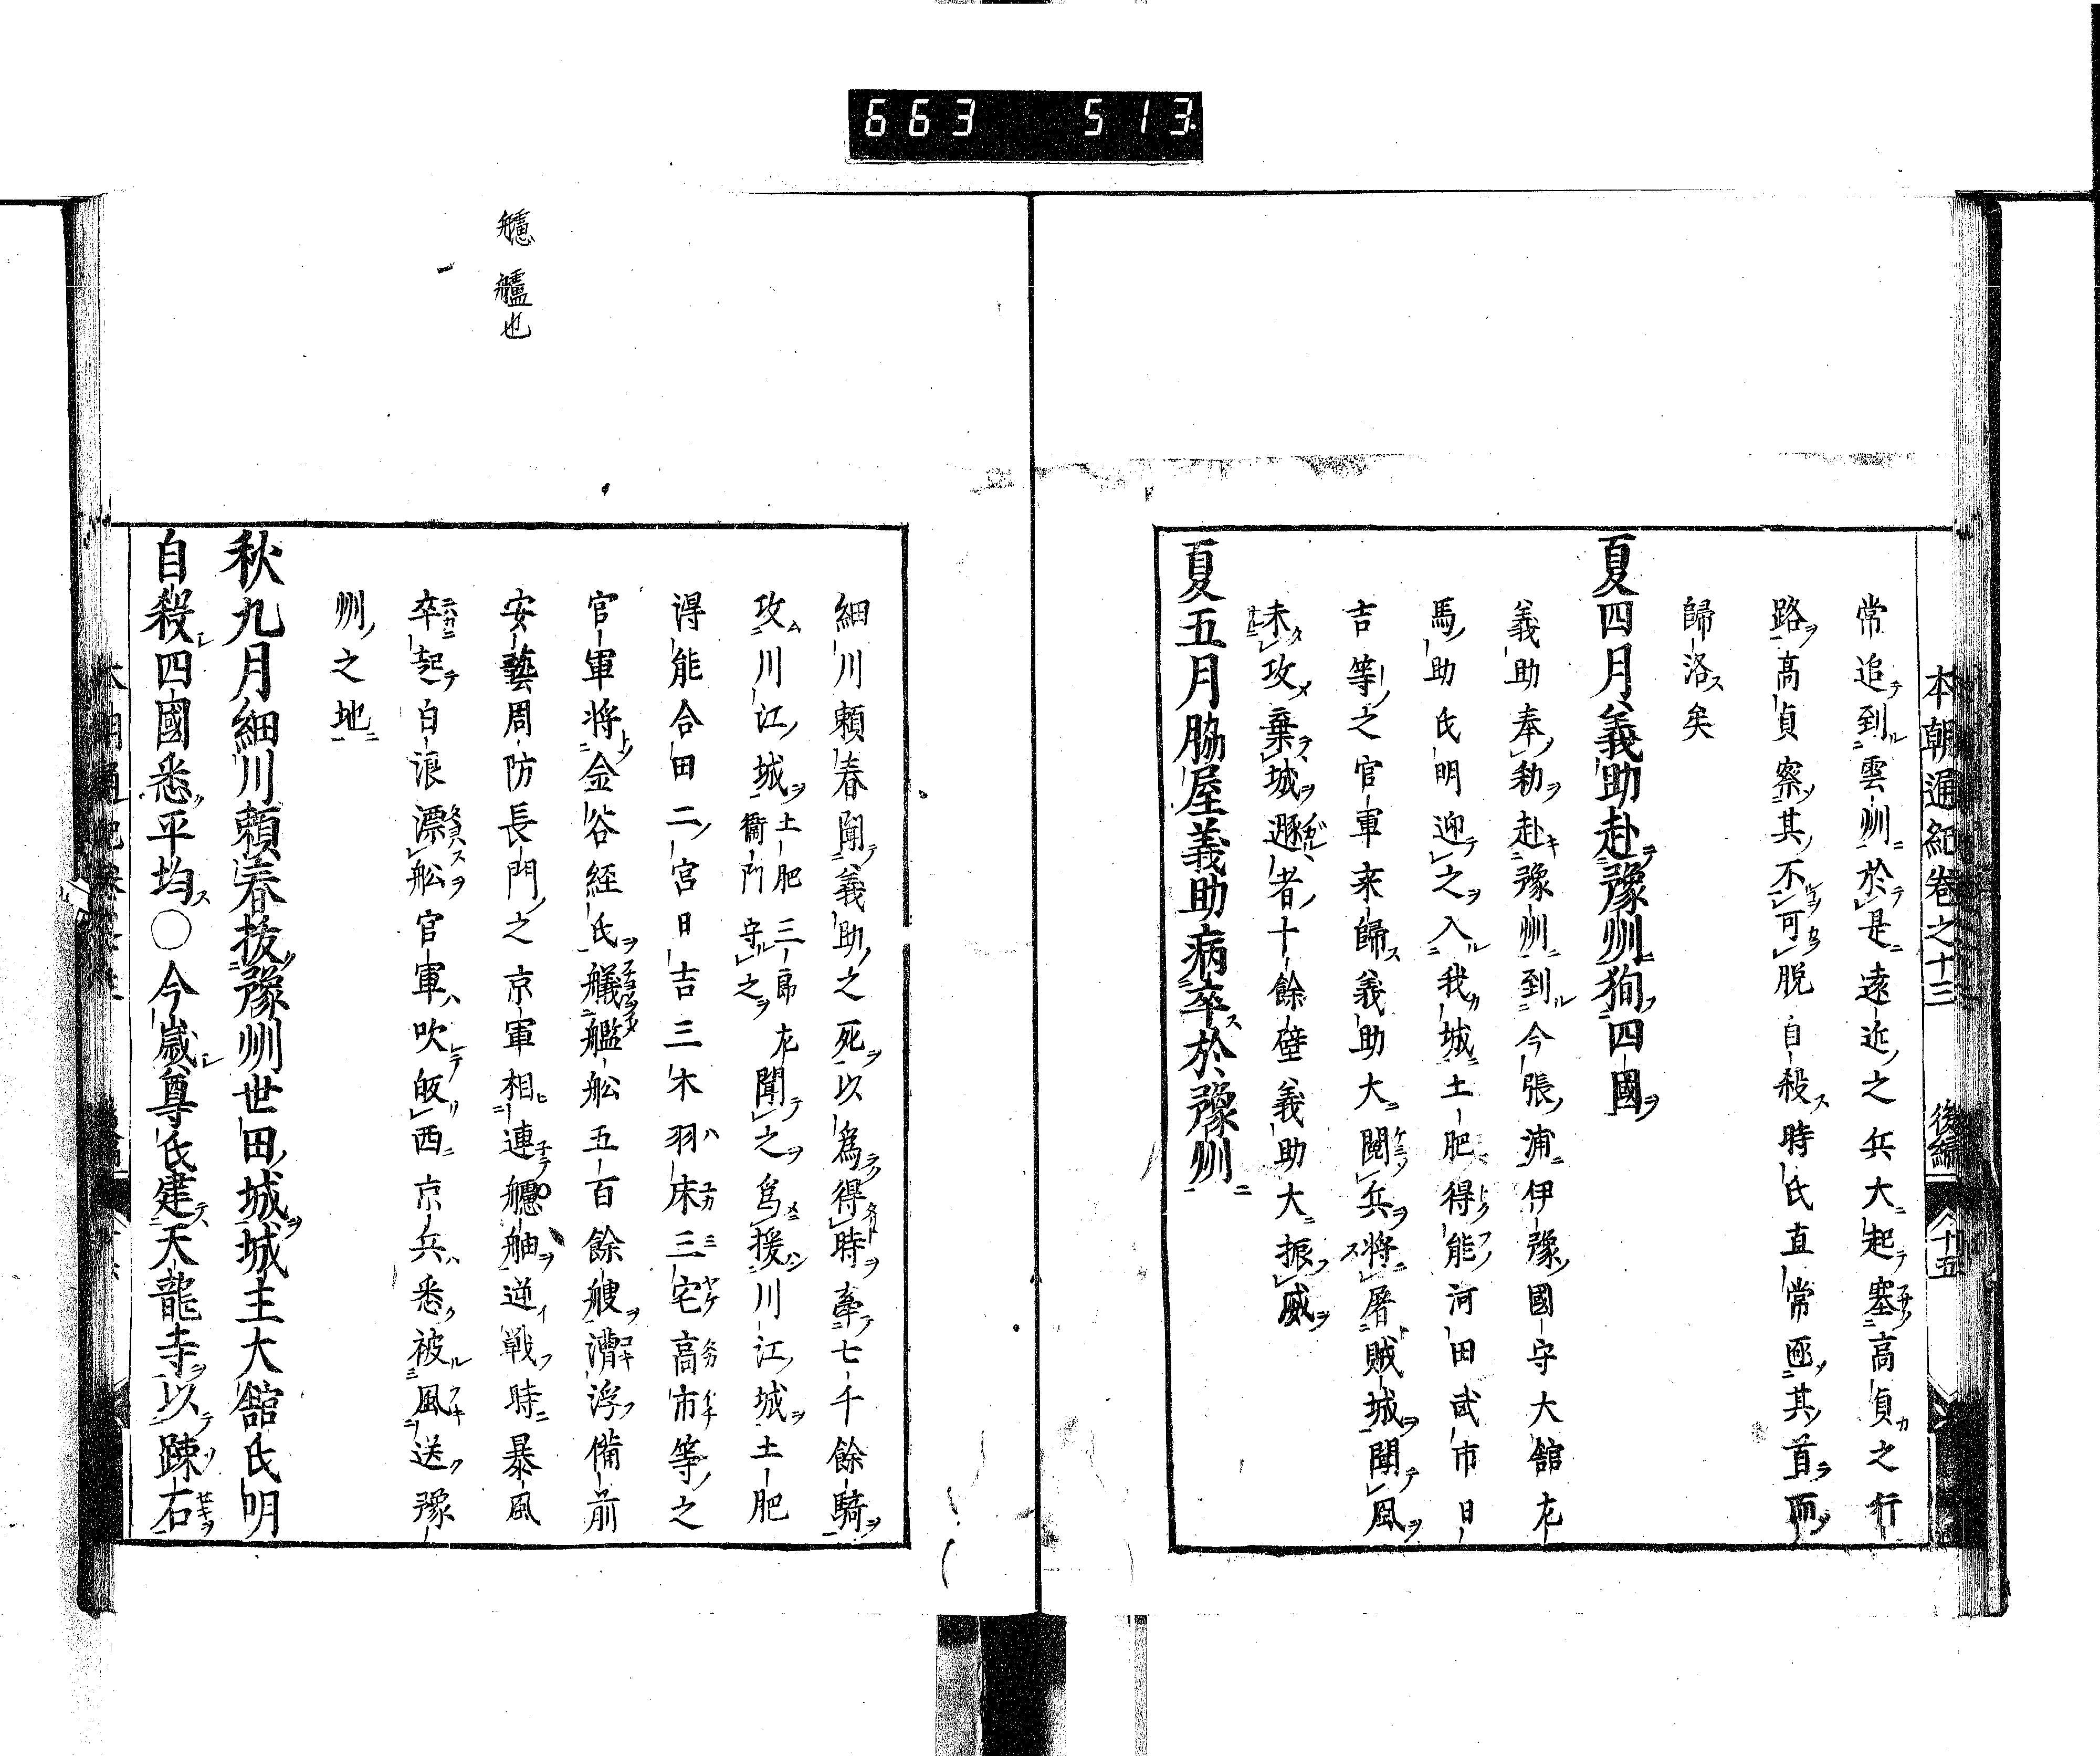 663 513
本朝通紀巻之十三 後編 十五
常追到雲州於是遠近之兵大起塞高貞之行
路高貞察其不可脱自殺時氏直常匝其首而
歸洛矣
夏四月義助赴豫州狥四國
義助奉勅赴豫州到今張浦伊豫國守大舘左
馬助氏明迎之入我城土肥得能河田武市日
吉等之官軍来歸義助大閲兵將屠賊城聞風
未攻棄城遯者十餘壁義助大振威
夏五月脇屋義助病卒於豫州
艫也
細川頼春聞義助之死以為得時牽七千餘騎
攻川江城土肥三郎左衞門守之聞之為援川江城土肥
得能合田二宮日吉三木羽床三宅高市等之
官軍将金谷経氏艤艦舩五百餘艘漕浮備前
安藝周防長門之京軍相連艫舳逆戦時暴風
卒起白浪漂舩官軍吹皈西京兵悉被風送豫
州之地
秋九月細川頼春抜豫州世田城城主大舘氏明
自殺四國悉平均〇今歳尊氏建天龍寺以踈石